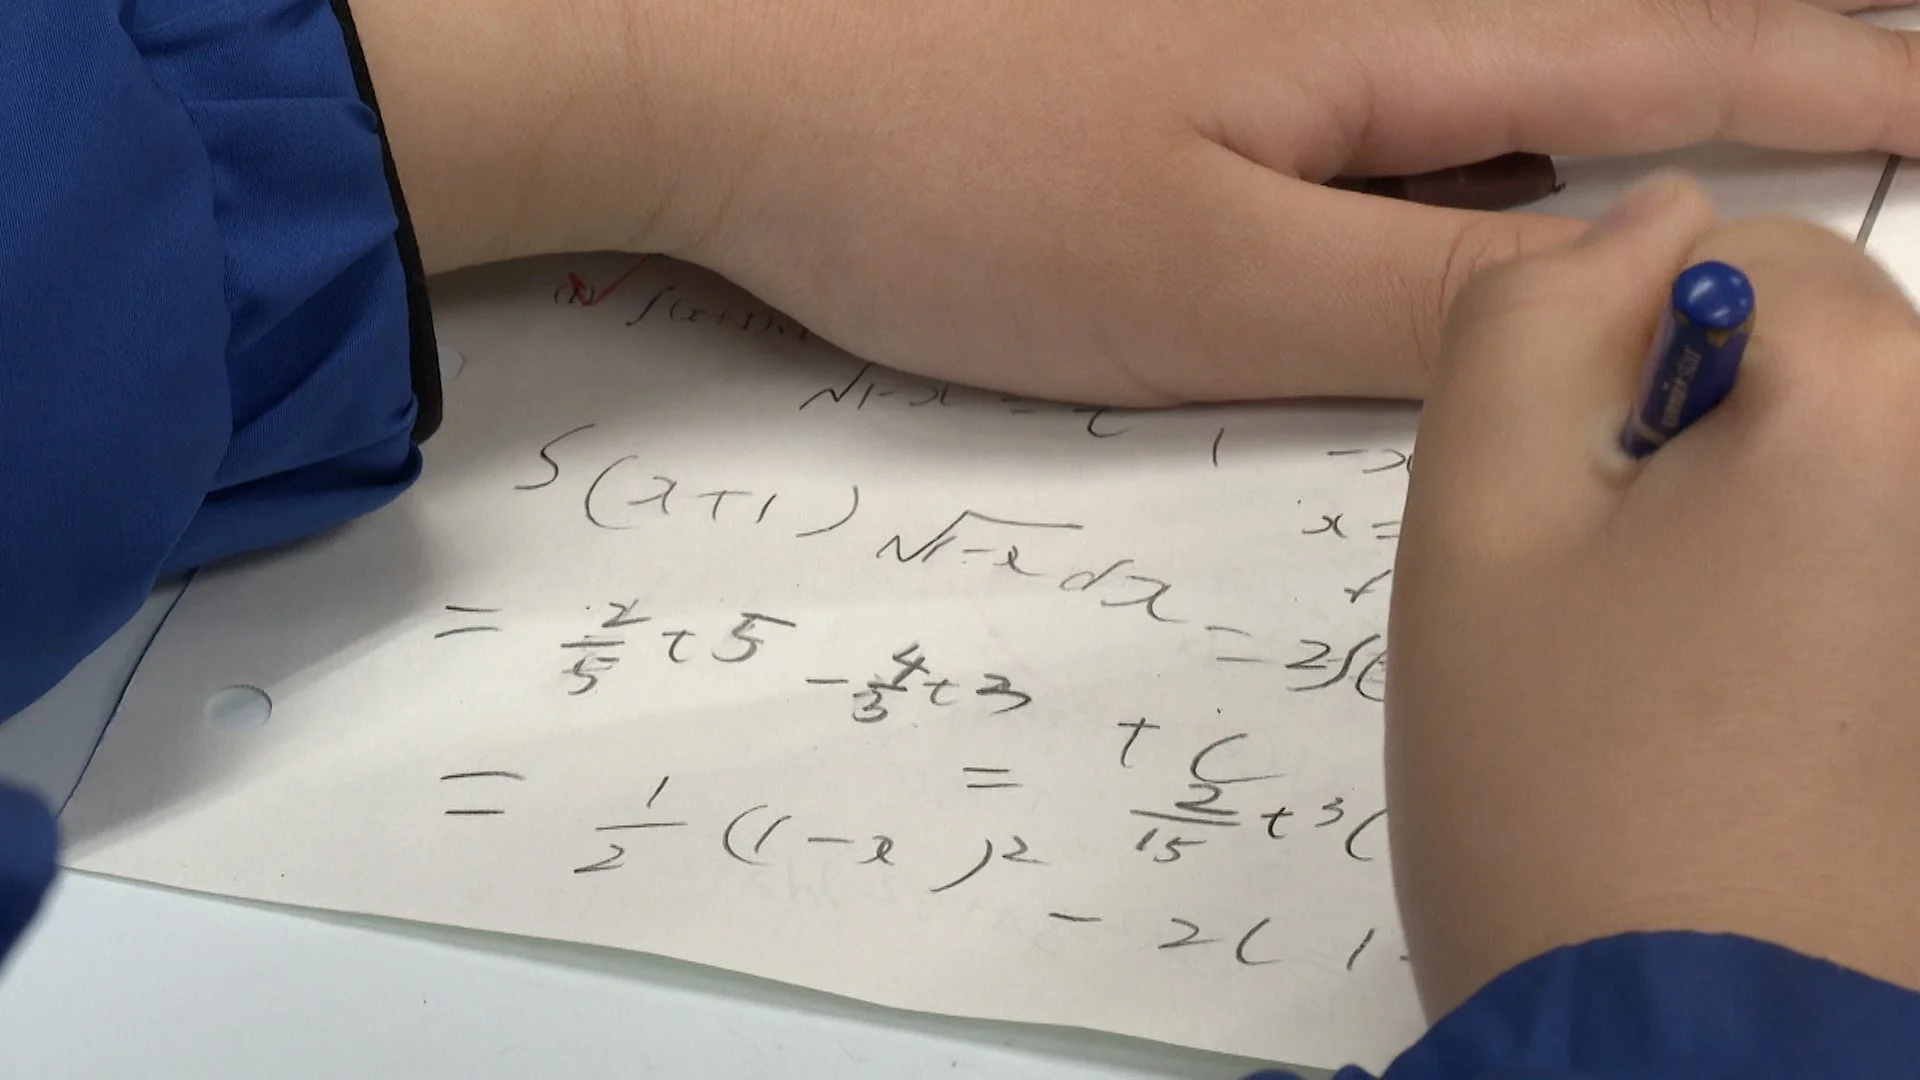 ∫(x+1)√
√1-x = t
1 -x
x =
∫(x+1)√1-x dx = 2∫(
= 2/5 t^5 - 4/3 t^3 + C
= 2/15 t^3(
= 1/2 (1-x)^2 - 2(1-